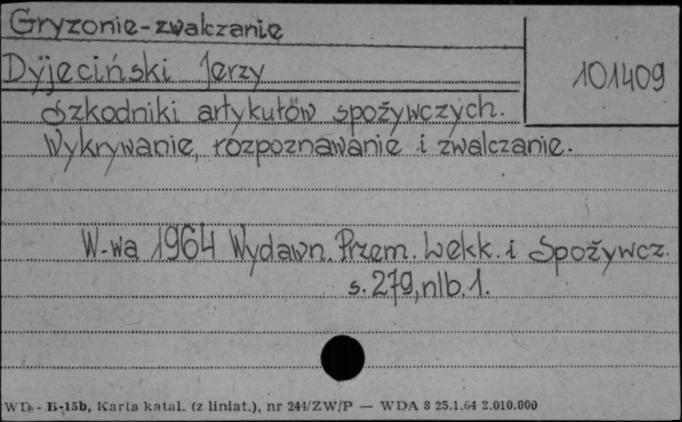 Gryzonie-zwalczanie
Dyjeciński Jerzy
101409
Szkodniki artykułów spożywczych.
Wykrywanie, rozpoznawanie i zwalczanie.
W-wa 1964 Wydawn. Przem. Lekk. i Spożywcz.
s. 279, nlb. 1.
WD - B-15b, Karta katal. (z liniat.), nr 244/ZW/P — WDA 8 25.1.64 2.010.000